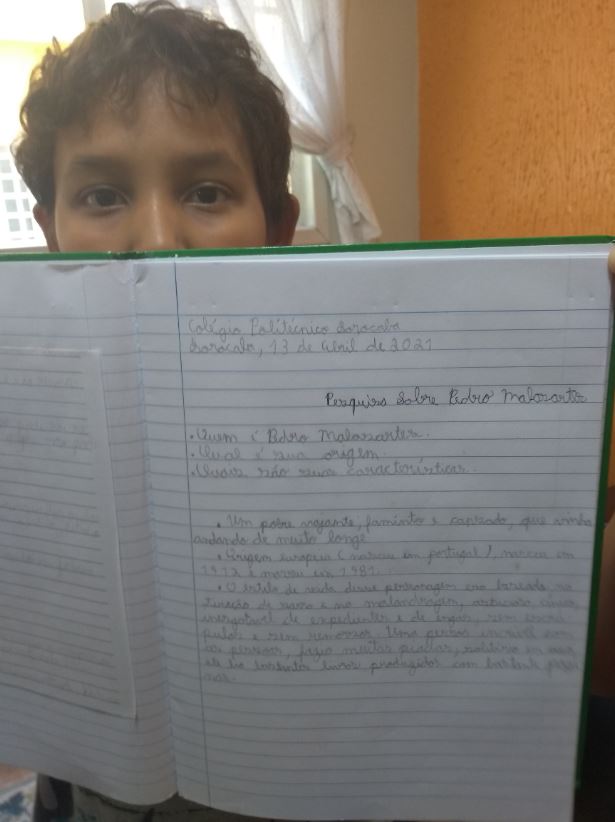 Colégio Politécnico Sorocaba
Sorocaba, 13 de Abril de 2021
Pesquisa Sobre Pedro Malasartes
• Quem é Pedro Malasartes.
• Qual é sua origem.
• Quais são suas características.
• Um pobre viajante, faminto e cansado, que vinha
andando de muito longe
• Origem europeia (nasceu em portugal), nasceu em
e morreu em 1981.
• O estilo de vida desse personagem era baseado na
de e na malandragem, artucioso
inesgotável de expedientes e de sem escrú
pulos e sem remorsos. Uma pessoa
as pessoas, fazia muitas piadas,
livros produzidos com